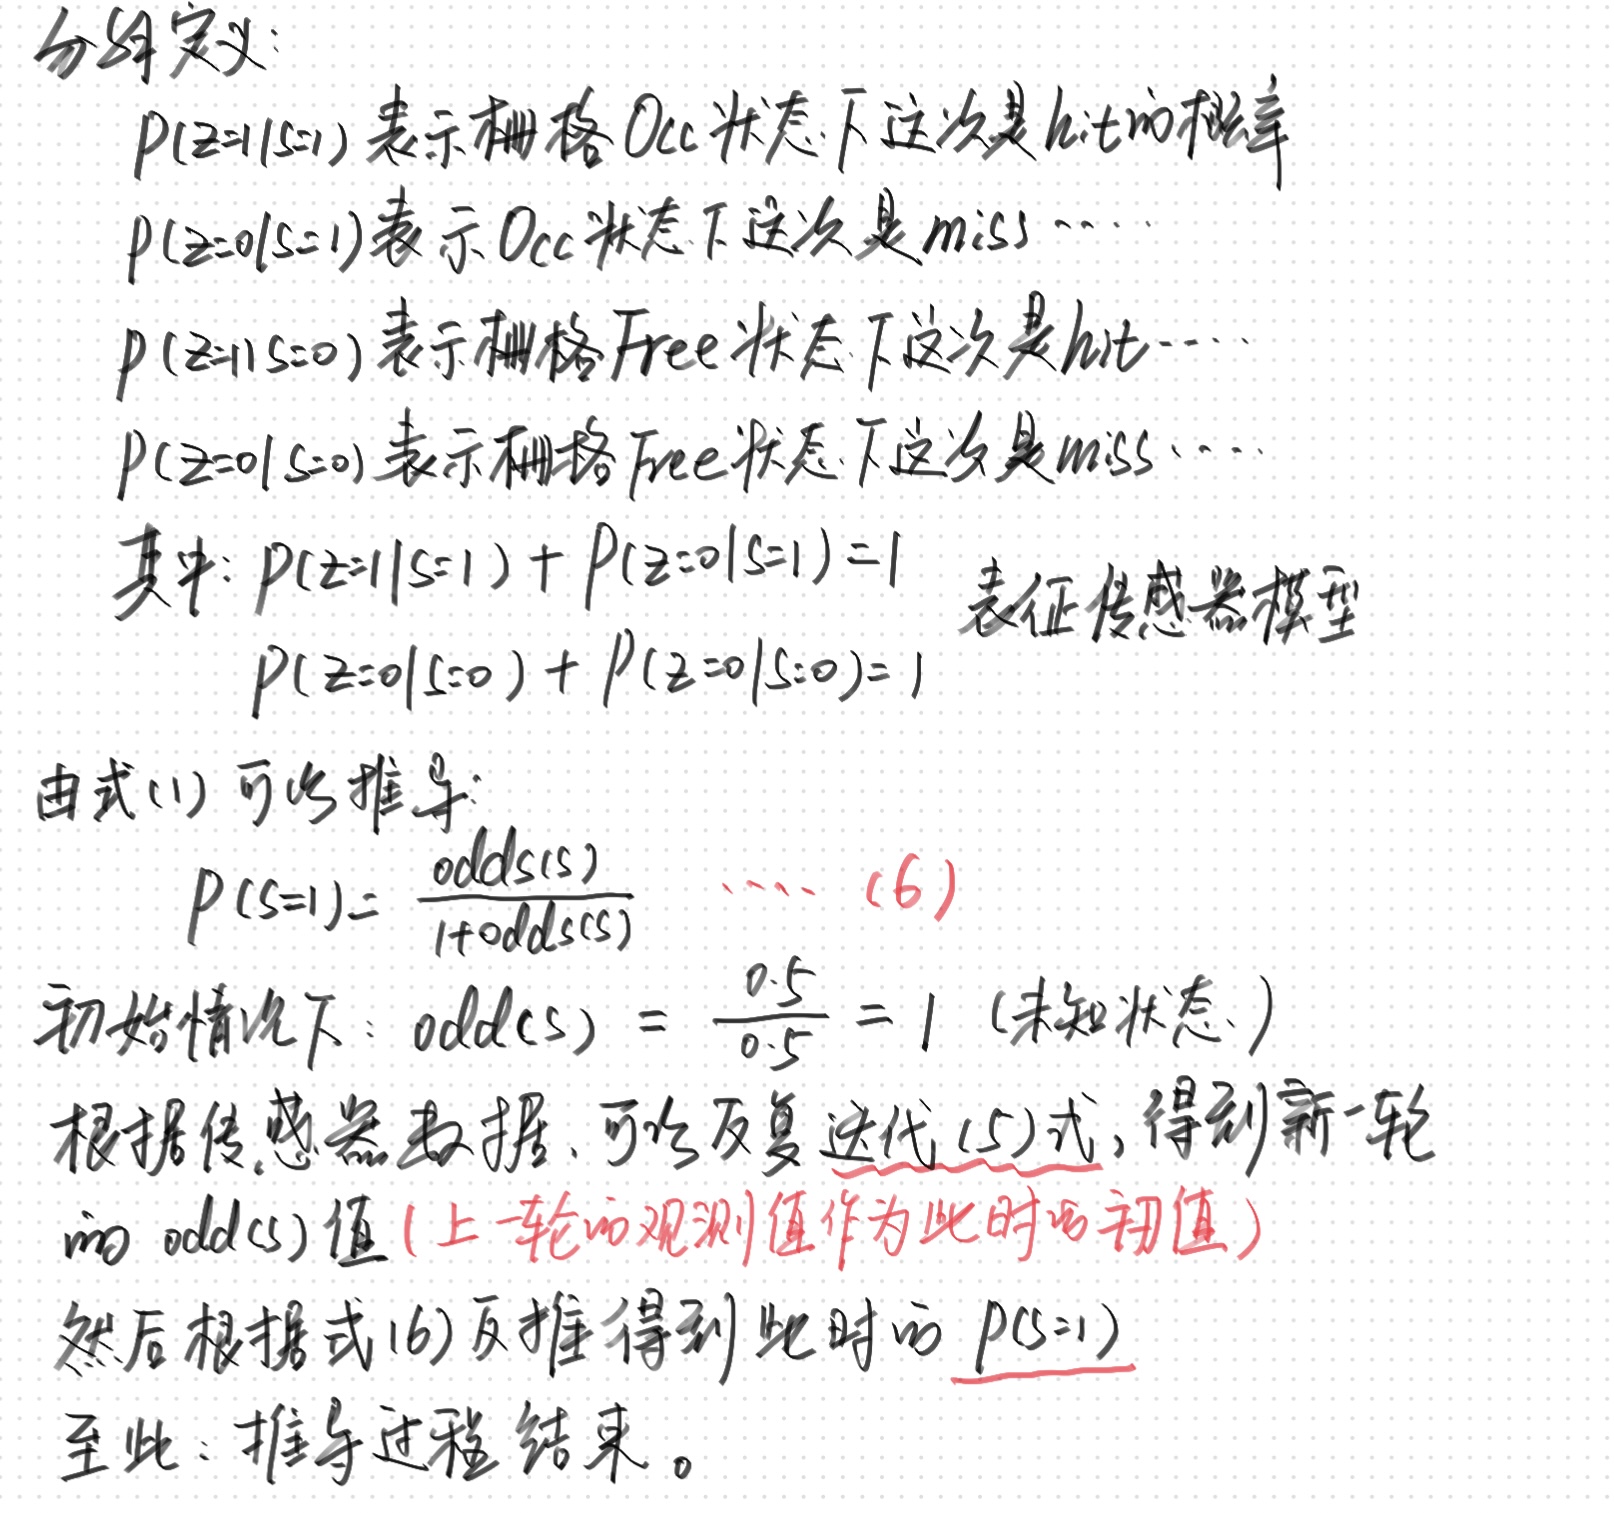 分组定义:
P(z=1|s=1) 表示栅格 Occ 状态下这次是 hit 的概率
P(z=0|s=1) 表示 Occ 状态下这次是 miss ……
P(z=1|s=0) 表示栅格 Free 状态下这次是 hit ……
P(z=0|s=0) 表示栅格 Free 状态下这次是 miss ……
其中: P(z=1|s=1) + P(z=0|s=1) = 1
表征传感器模型
P(z=0|s=0) + P(z=0|s=0) = 1
由式(1) 可以推导:
P(s=1) = odds(s) / 1+odds(s) …… (6)
初始情况下: odd(s) = 0.5 / 0.5 = 1 (未知状态)
根据传感器数据、可以反复迭代(5)式, 得到新一轮
的 odd(s) 值 (上一轮的观测值作为此时的初值)
然后根据式(6)反推得到此时的 P(s=1)
至此: 推导过程结束。